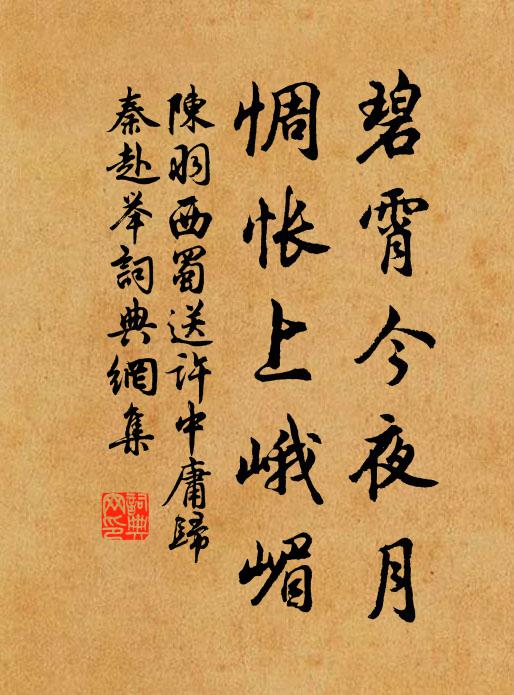 碧霄今夜月
惆怅上峨嵋
陳羽西蜀送許中庸歸
秦赴举詞典網集